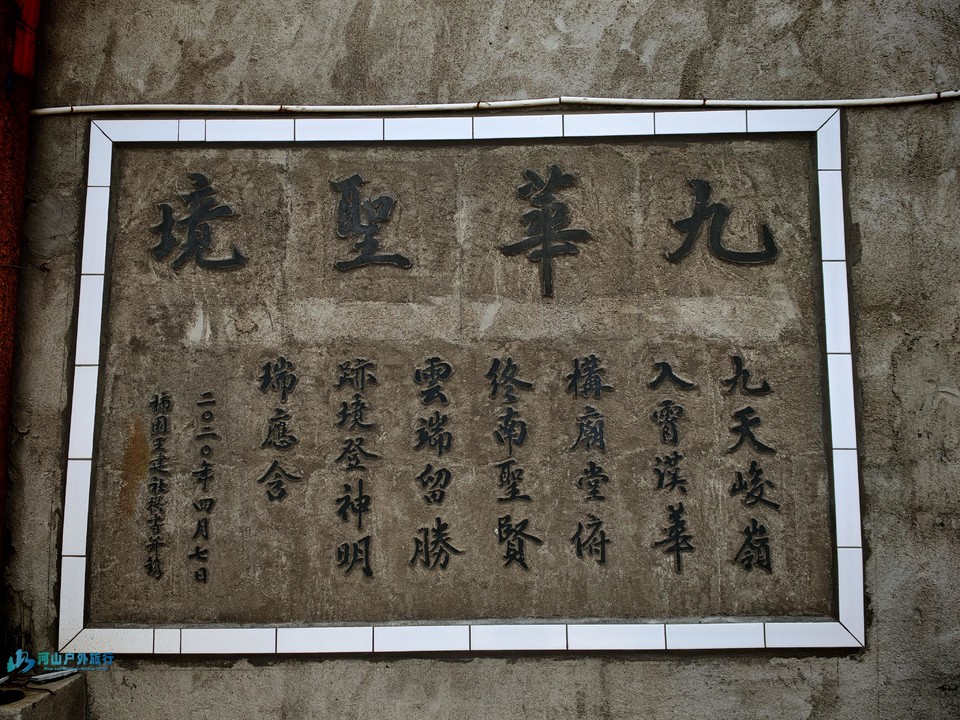 九華聖境
九天峻嶺
入霄漢華
構廟堂俯
終南聖賢
雲端留勝
跡境登神
明
瑞應含
二〇二〇年四月七日
河山户外旅行